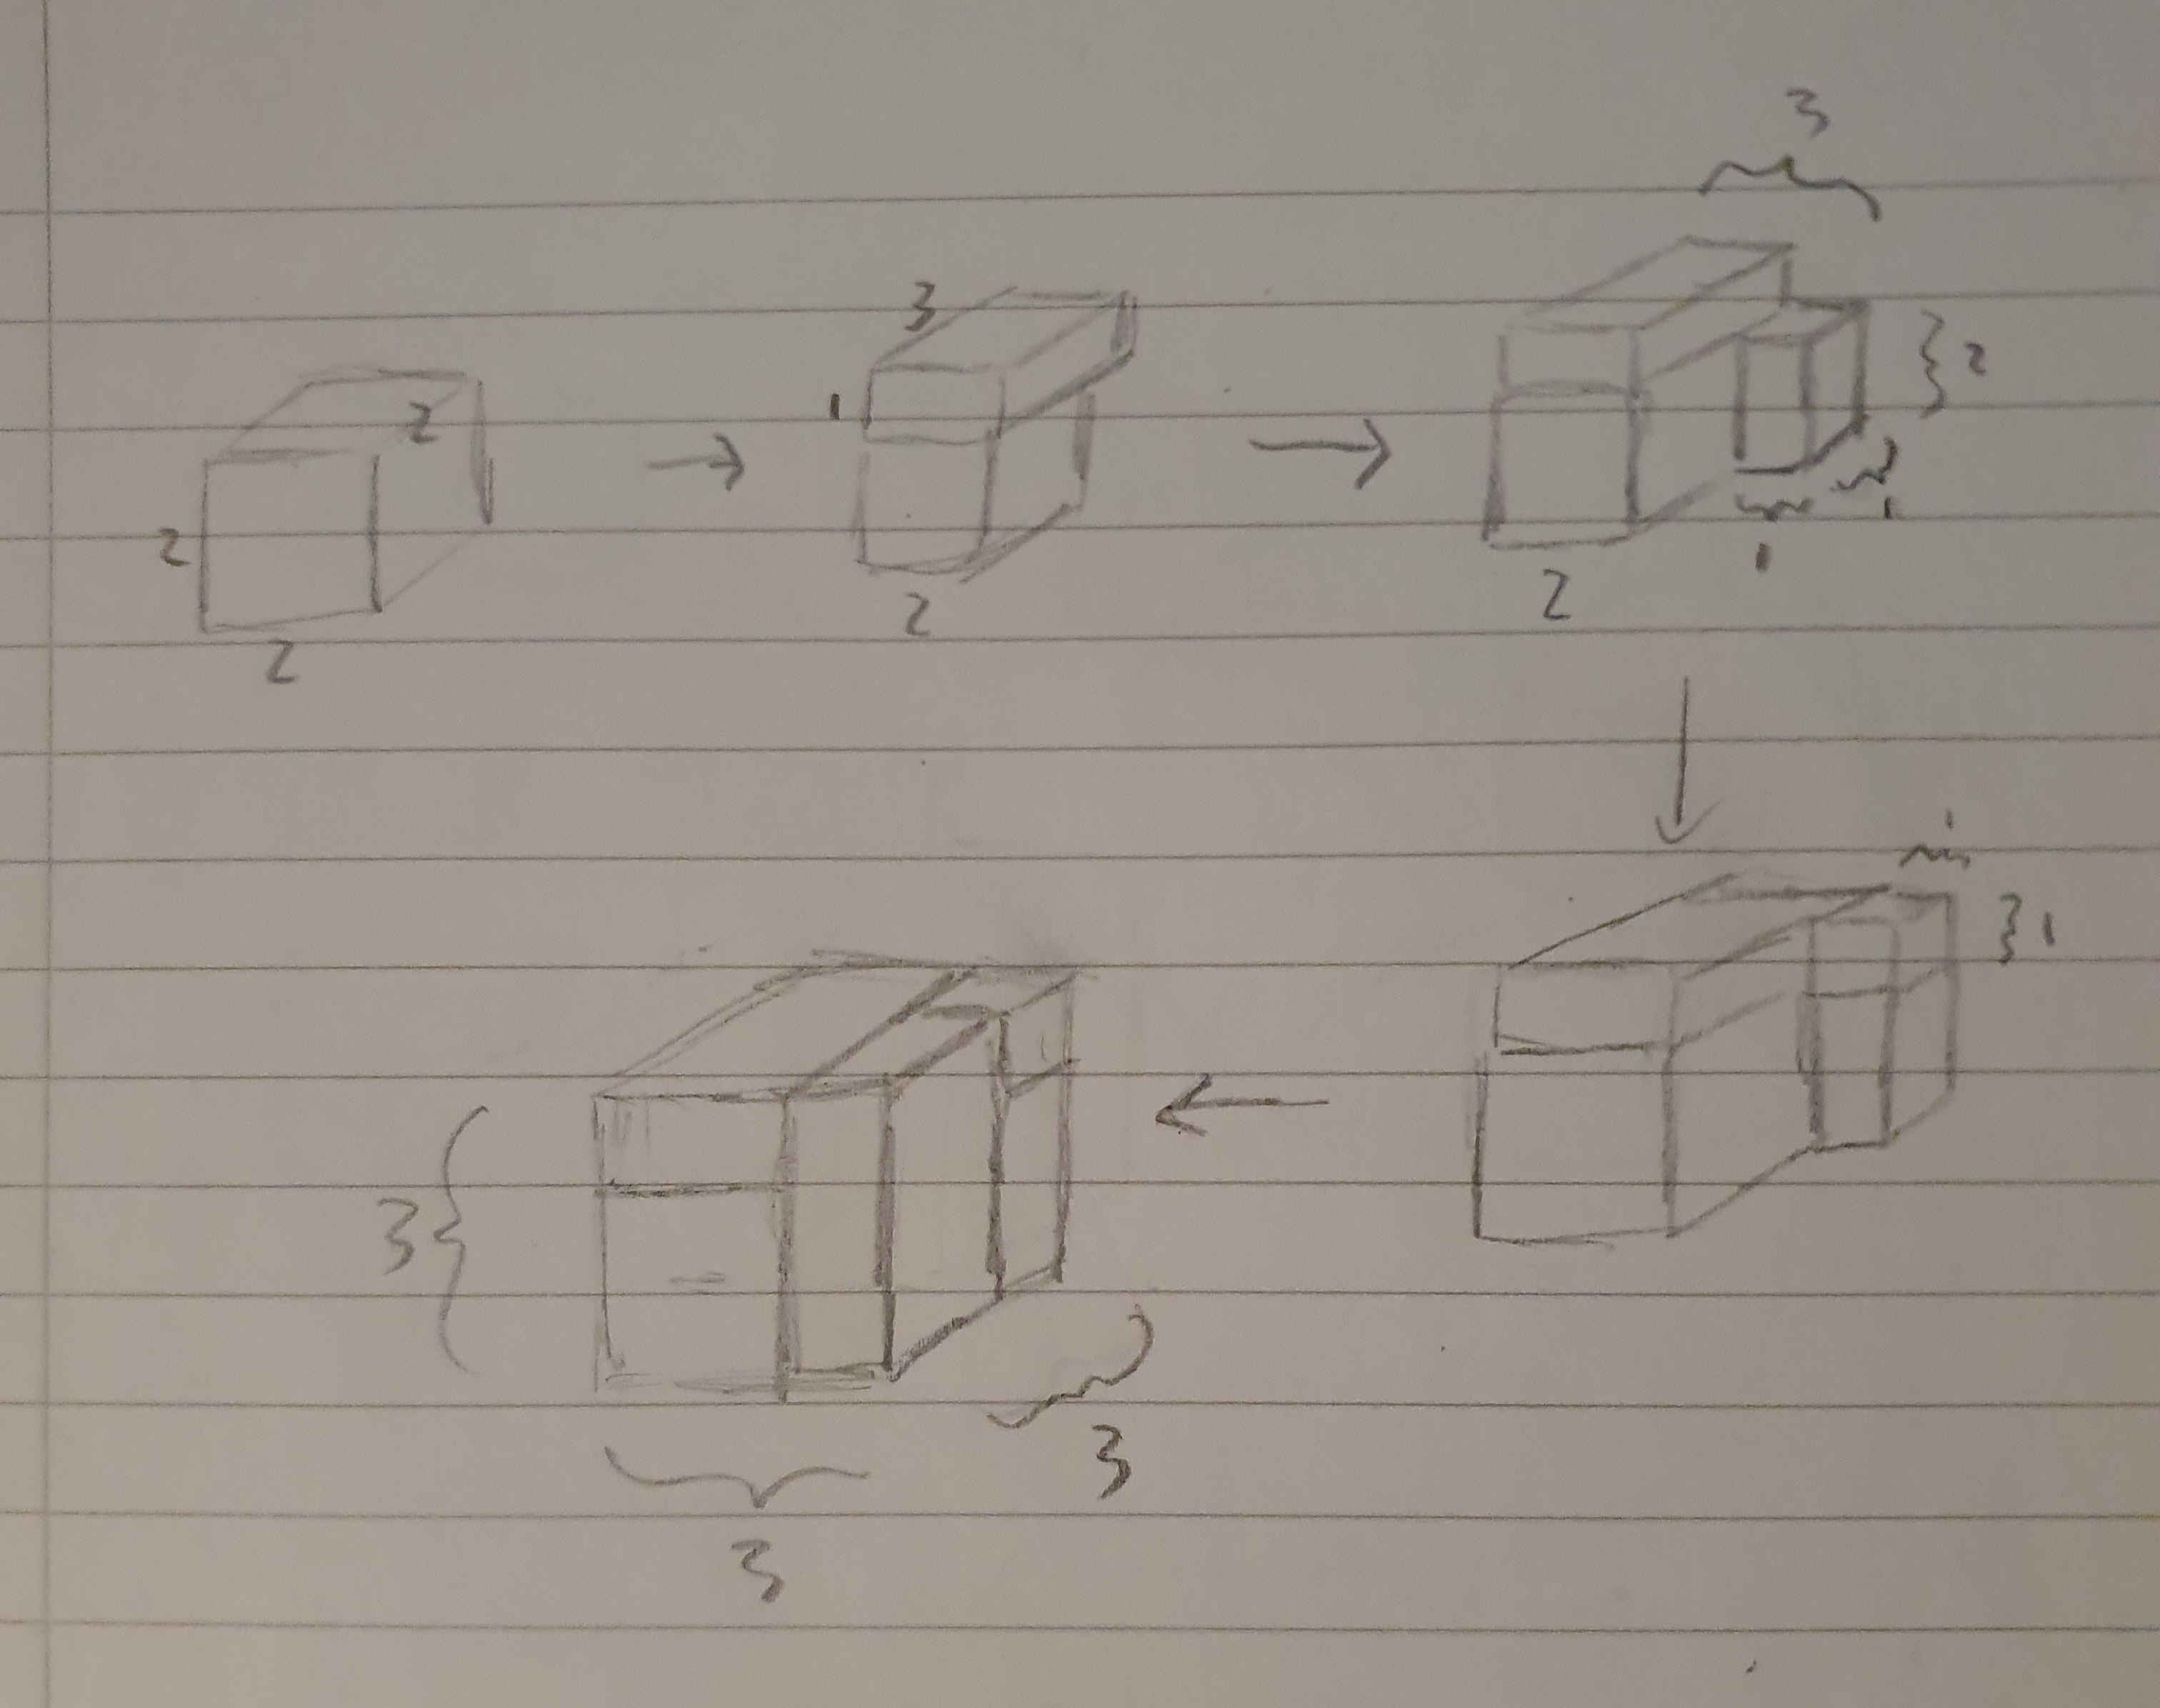 2
2
2
3
1
2
3
2
1
1
2
1
1
3
3
3